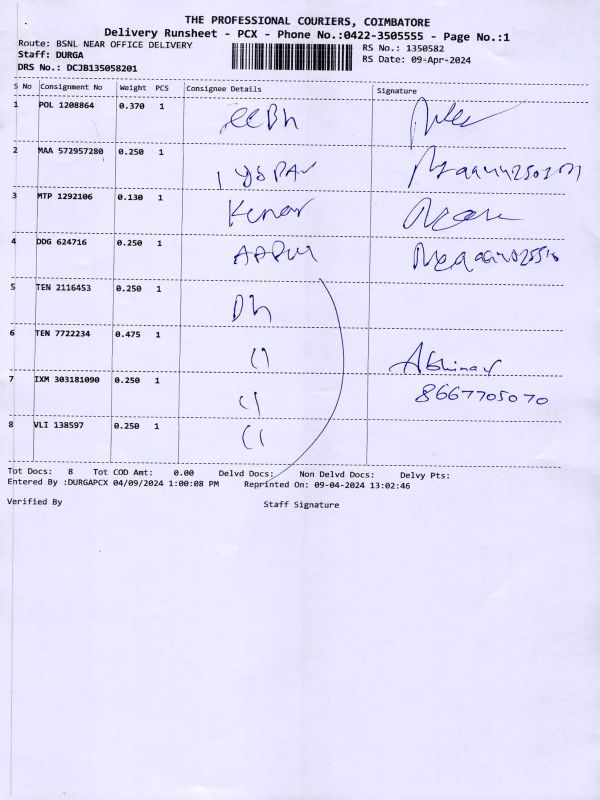 THE PROFESSIONAL COURIERS, COIMBATORE
Delivery Runsheet - PCX - Phone No.:0422-3505555 - Page No.:1
Route: BSNL NEAR OFFICE DELIVERY RS No.: 1350582
Staff: DURGA RS Date: 09-Apr-2024
DRS No.: DCJB135058201
S No Consignment No Weight PCS Consignee Details Signature
1 POL 1208864 0.370 1
2 MAA 572957280 0.250 1
3 MTP 1292106 0.130 1 Kumar
4 DDG 624716 0.250 1
5 TEN 2116453 0.250 1
6 TEN 7722234 0.475 1 Abhinav
7 IXM 303181090 0.250 1 8667705070
8 VLI 138597 0.250 1
Tot Docs: 8 Tot COD Amt: 0.00 Delvd Docs: Non Delvd Docs: Delvy Pts:
Entered By :DURGAPCX 04/09/2024 1:00:08 PM Reprinted On: 09-04-2024 13:02:46
Verified By Staff Signature